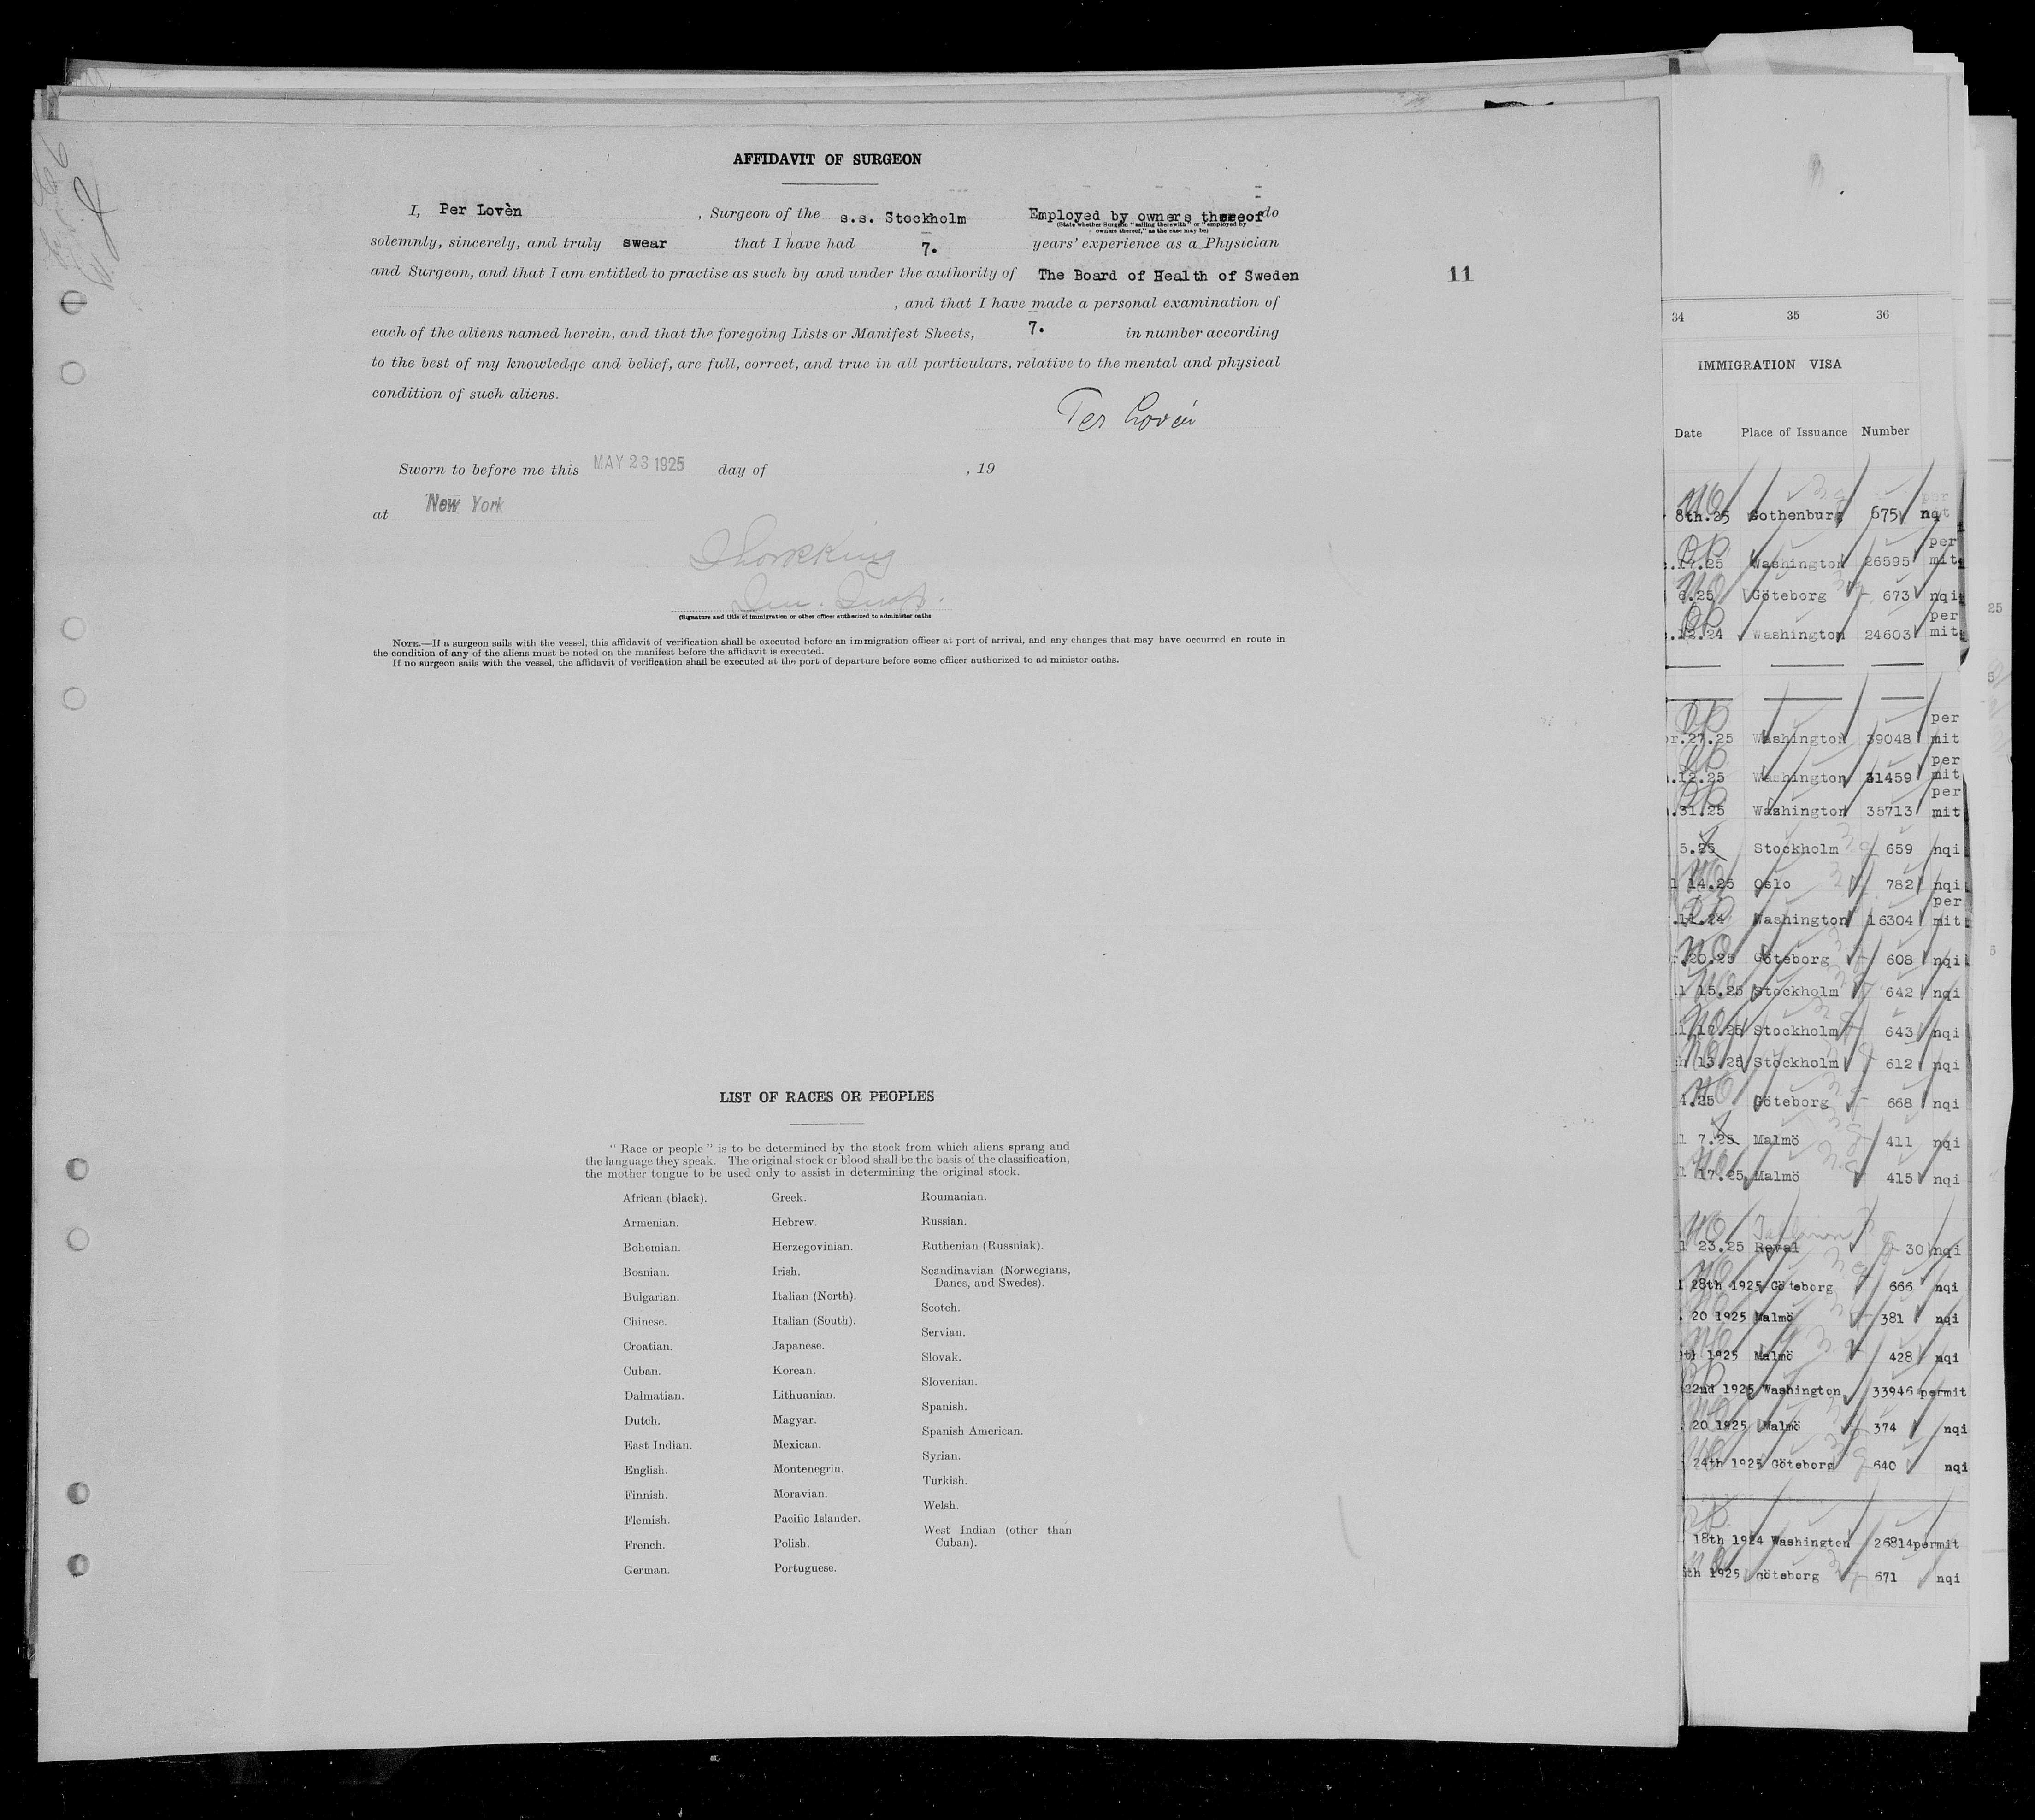 AFFIDAVIT OF SURGEON
I, Per Lovèn , Surgeon of the s.s. Stockholm Employed by owners thereof do
(State whether Surgeon "sailing therewith" or "employed by
owners thereof," as the case may be)
solemnly, sincerely, and truly swear that I have had 7. years' experience as a Physician
and Surgeon, and that I am entitled to practise as such by and under the authority of The Board of Health of Sweden
11
, and that I have made a personal examination of
each of the aliens named herein, and that the foregoing Lists or Manifest Sheets, 7. in number according
to the best of my knowledge and belief, are full, correct, and true in all particulars, relative to the mental and physical
condition of such aliens.
Per Lovén
Sworn to before me this MAY 23 1925 day of , 19
at New York
(Signature and title of immigration or other officer authorized to administer oaths
NOTE.—If a surgeon sails with the vessel, this affidavit of verification shall be executed before an immigration officer at port of arrival, and any changes that may have occurred en route in
the condition of any of the aliens must be noted on the manifest before the affidavit is executed.
If no surgeon sails with the vessel, the affidavit of verification shall be executed at the port of departure before some officer authorized to ad minister oaths.
LIST OF RACES OR PEOPLES
"Race or people" is to be determined by the stock from which aliens sprang and
the language they speak. The original stock or blood shall be the basis of the classification,
the mother tongue to be used only to assist in determining the original stock.
African (black).
Armenian.
Bohemian.
Bosnian.
Bulgarian.
Chinese.
Croatian.
Cuban.
Dalmatian.
Dutch.
East Indian.
English.
Finnish.
Flemish.
French.
German.
Greek.
Hebrew.
Herzegovinian.
Irish.
Italian (North).
Italian (South).
Japanese.
Korean.
Lithuanian.
Magyar.
Mexican.
Montenegrin.
Moravian.
Pacific Islander.
Polish.
Portuguese.
Roumanian.
Russian.
Ruthenian (Russniak).
Scandinavian (Norwegians,
Danes, and Swedes).
Scotch.
Servian.
Slovak.
Slovenian.
Spanish.
Spanish American.
Syrian.
Turkish.
Welsh.
West Indian (other than
Cuban).
34 35 36
IMMIGRATION VISA
Date Place of Issuance Number
8th.25 Gothenburg 675 nq
.17.25 Washington 26595 per mit
6.25 Göteborg 673 nqi
.12.24 Washington 24603 per mit
r.27.25 Washington 39048 per mit
.12.25 Washington 31459 per mit
.31.25 Washington 35713 per mit
5.25 Stockholm 659 nqi
14.25 Oslo 782 nqi
.11.24 Washington 16304 per mit
.20.25 Göteborg 608 nqi
15.25 Stockholm 642 nqi
17.25 Stockholm 643 nqi
h 13.25 Stockholm 612 nqi
4.25 Göteborg 668 nqi
7.25 Malmö 411 nqi
17.25 Malmö 415 nqi
23.25 Reval 30 nqi
28th 1925 Göteborg 666 nqi
20 1925 Malmö 381 nqi
th 1925 Malmö 428 nqi
22nd 1925 Washington 33946 permit
20 1925 Malmö 374 nqi
24th 1925 Göteborg 640 nqi
18th 1924 Washington 26814 permit
th 1925 Göteborg 671 nqi
25
5